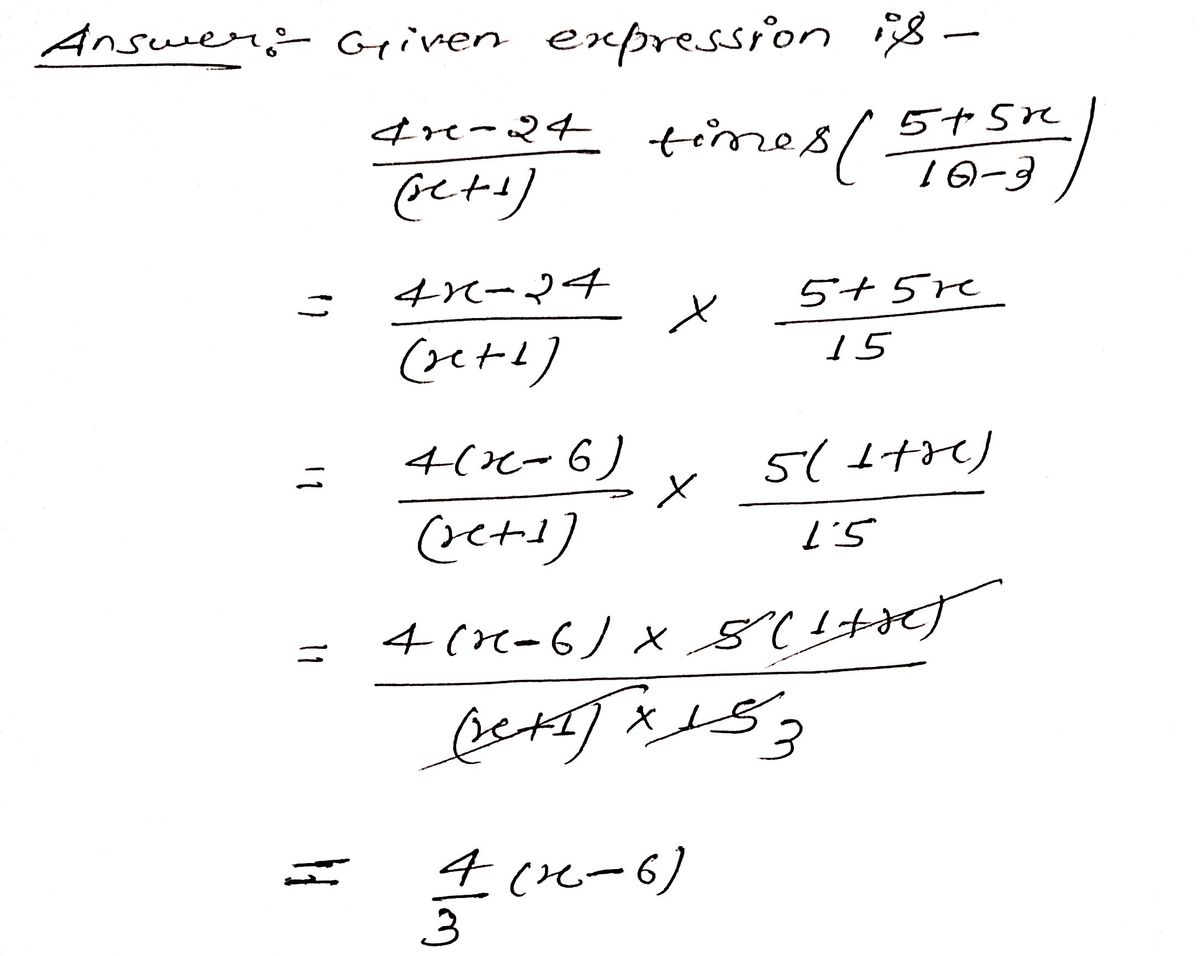 Answer:- Given expression is -
4x-24/(x+1) times (5+5x/18-3)
= 4x-24/(x+1) × 5+5x/15
= 4(x-6)/(x+1) × 5(1+x)/15
= 4(x-6) × 5(1+x)/(x+1) × 15 3
= 4/3 (x-6)